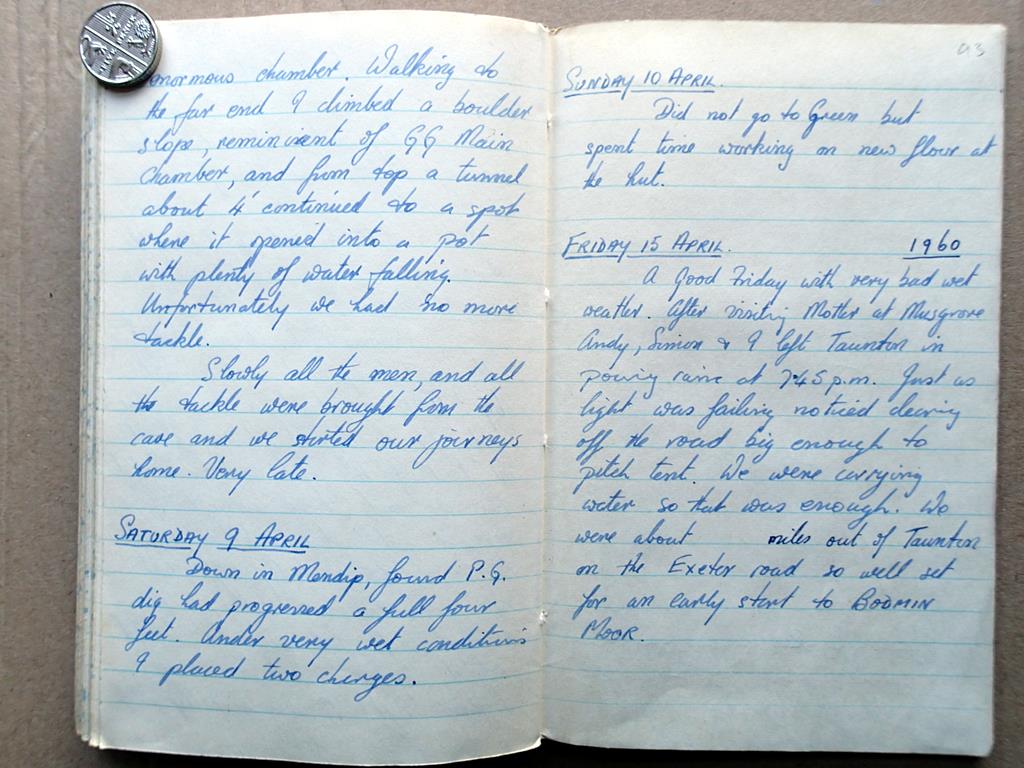 enormous chamber. Walking to
the far end I climbed a boulder
slope, reminiscent of GG Main
Chamber, and from top a tunnel
about 4' continued to a spot
where it opened into a pot
with plenty of water falling.
Unfortunately we had no more
tackle.
Slowly all the men, and all
the tackle were brought from the
cave and we started our journeys
home. Very late.
SATURDAY 9 APRIL
Down in Mendip, found P.G.
dig had progressed a full four
feet. Under very wet conditions
I placed two charges.
93
SUNDAY 10 APRIL.
Did not go to Green but
spent time working on new floor at
the hut.
FRIDAY 15 APRIL. 1960
A Good Friday with very bad wet
weather. After visiting Mother at Musgrove
Andy, Simon & I left Taunton in
pouring rain at 7.45 p.m. Just as
light was failing noticed clearing
off the road big enough to
pitch tent. We were carrying
water so that was enough. We
were about miles out of Taunton
on the Exeter road so well set
for an early start to BODMIN
MOOR.